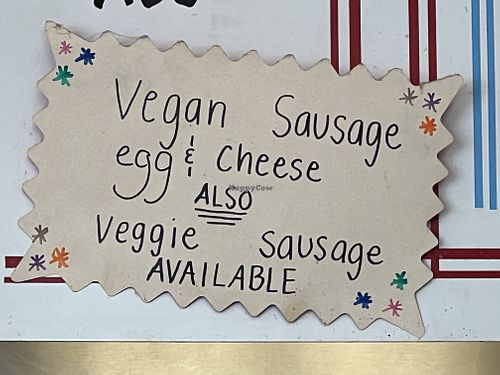 Vegan Sausage
egg & cheese
ALSO
Veggie sausage
AVAILABLE
HappyCow